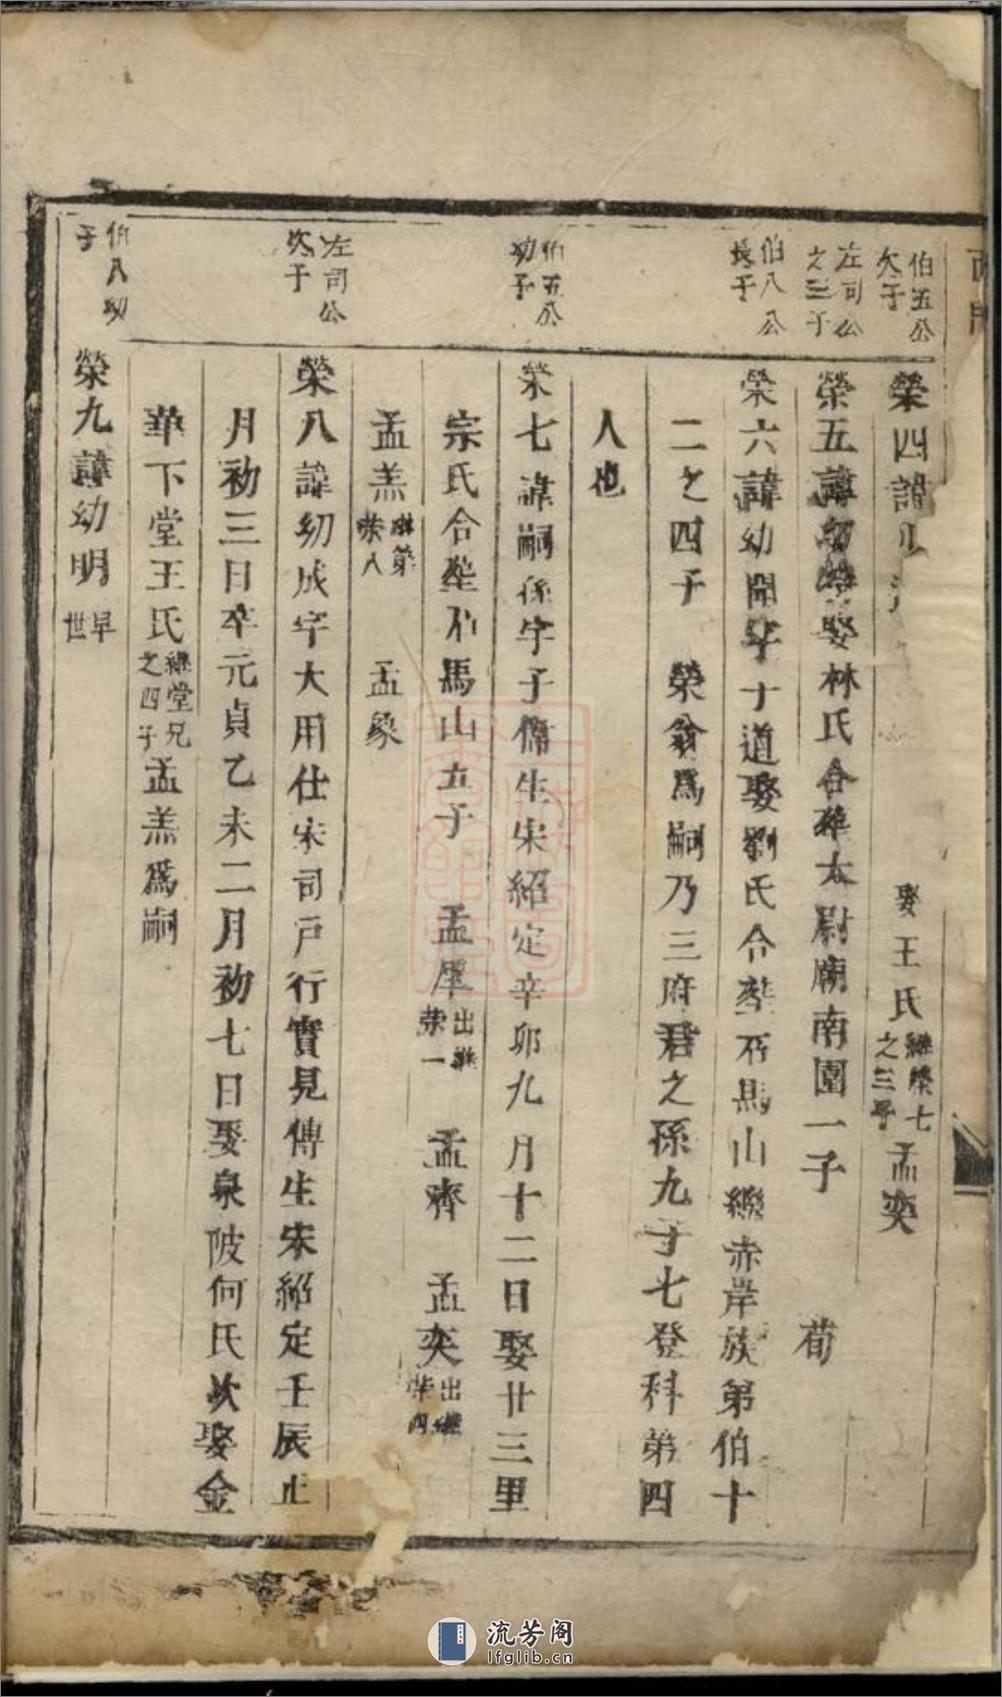 伯五公
次子
榮四諱
娶王氏繼榮七之三子孟奕
左司公
之三子
榮五諱幼 娶林氏合葬太尉廟南園一子 荀
伯八公
長子
榮六諱幼開字十道娶劉氏合葬石馬山繼赤岸族第伯十
二之四子 榮翁爲嗣乃三府君之孫九子七登科第四
人也
伯五公
幼子
榮七諱嗣孫字子儒生宋紹定辛卯九月十二日娶廿三里
宗氏合葬石馬山五子 孟厚出繼榮一 孟齊 孟奕出繼榮四
孟羔繼第榮八 孟象
左司公
次子
榮八諱幼成字大用仕宋司戶行實見傳生宋紹定壬辰正
月初三日卒元貞乙未二月初七日娶泉陂何氏次娶金
華下堂王氏繼堂兄之四子孟羔爲嗣
伯八幼
子
榮九諱幼明早世
流芳阁
lfglib.cn